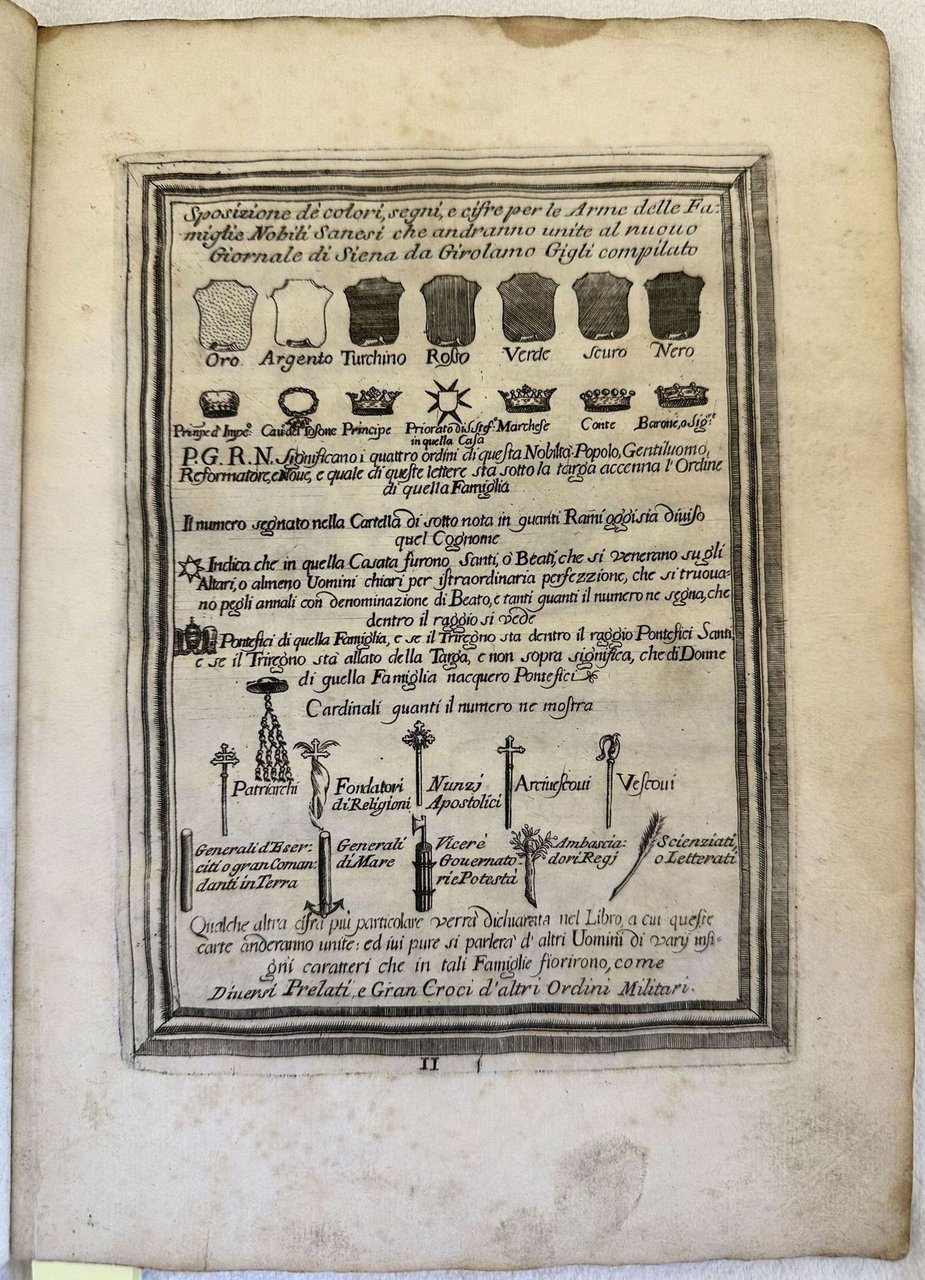 Sposizione dè colori, segni, e cifre per le Arme delle Fa-
miglie Nobili Sanesi che andranno unite al nuouo
Giornale di Siena da Girolamo Gigli compilato
Oro Argento Turchino Rosso Verde scuro Nero
Prinpe d' Impe. Cau. del Tosone Principe Priorato di S. Stef.o Marchese Conte Barone, o Sig.re
in quella Casa
P. G. R. N. significano i quattro ordini di questa Nobiltà: Popolo, Gentiluomo,
Reformatore, e Noue, e quale di queste lettere sta sotto la targa accenna l' Ordine
di quella Famiglia
Il numero segnato nella Cartella di sotto nota in quanti Rami oggi sia diuiso
quel Cognome
Indica che in quella Casata furono Santi, ò Beati, che si venerano su gli
Altari, o almeno Uomini chiari per istraordinaria perfezzione, che si truoua-
no pegli annali con denominazione di Beato, e tanti quanti il numero ne segna, che
dentro il raggio si vede
Pontefici di quella Famiglia, e se il Triregno sta dentro il raggio Pontefici Santi,
e se il Triregno sta allato della Targa, e non sopra significa, che di Donne
di quella Famiglia nacquero Pontefici
Cardinali quanti il numero ne mostra
Patriarchi Fondatori di Religioni Nunzj Apostolici Arciuescoui Vescoui
Generali d'Eser-
citi o gran Coman-
danti in Terra
Generali
di Mare
Vicerè
Gouernato-
ri e Potestà
Ambascia-
dori Regj
Scienziati,
o Letterati
Qualche altra cifra più particolare verrà dichiarata nel Libro, a cui queste
carte anderanno unite: ed iui pure si parlerà d' altri Uomini di varij insi-
gni caratteri che in tali Famiglie fiorirono, come
Diuersi Prelati, e Gran Croci d'altri Ordini Militari.
II